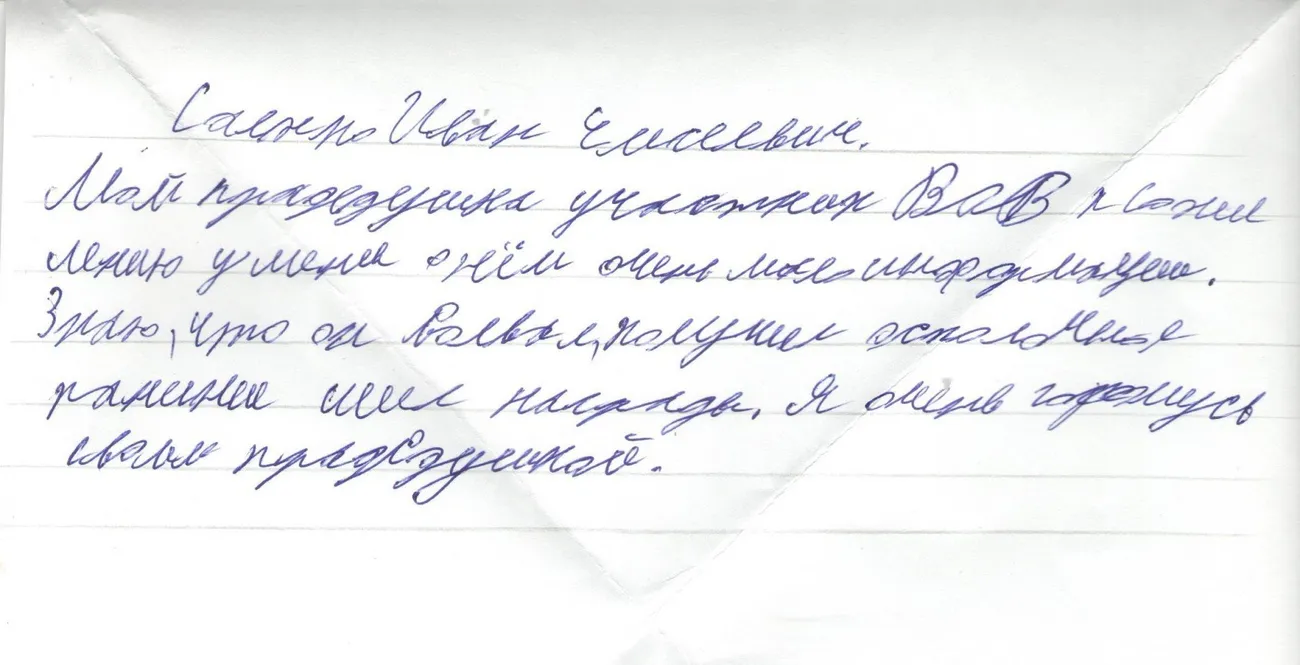 Саенко Иван Елисеевич.
Мой прадедушка участник ВОВ к сожа
лению у меня о нём очень мало информации.
Знаю, что он воевал, получил осколочное
ранение имел награды. Я очень горжусь
своим прадедушкой.